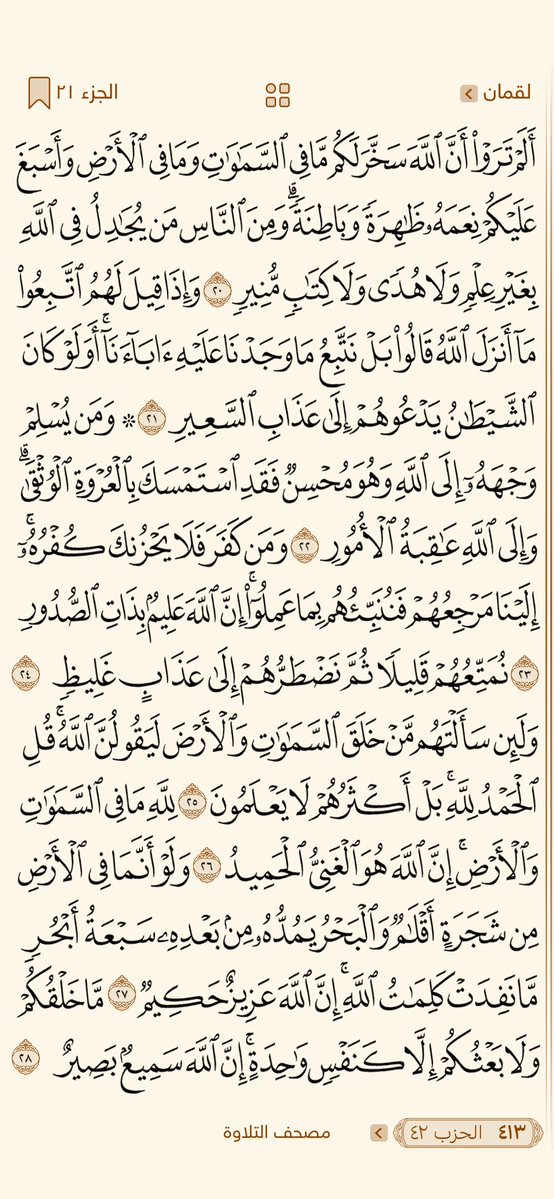 لقمان
الجزء ٢١
أَلَمۡ تَرَوۡاْ أَنَّ ٱللَّهَ سَخَّرَ لَكُم مَّا فِي ٱلسَّمَٰوَٰتِ وَمَا فِي ٱلۡأَرۡضِ وَأَسۡبَغَ
عَلَيۡكُمۡ نِعَمَهُۥ ظَٰهِرَةٗ وَبَاطِنَةٗۗ وَمِنَ ٱلنَّاسِ مَن يُجَٰدِلُ فِي ٱللَّهِ
بِغَيۡرِ عِلۡمٖ وَلَا هُدٗى وَلَا كِتَٰبٖ مُّنِيرٖ ٢٠ وَإِذَا قِيلَ لَهُمُ ٱتَّبِعُواْ
مَآ أَنزَلَ ٱللَّهُ قَالُواْ بَلۡ نَتَّبِعُ مَا وَجَدۡنَا عَلَيۡهِ ءَابَآءَنَآۚ أَوَلَوۡ كَانَ
ٱلشَّيۡطَٰنُ يَدۡعُوهُمۡ إِلَىٰ عَذَابِ ٱلسَّعِيرِ ٢١ ۞ وَمَن يُسۡلِمۡ
وَجۡهَهُۥٓ إِلَى ٱللَّهِ وَهُوَ مُحۡسِنٞ فَقَدِ ٱسۡتَمۡسَكَ بِٱلۡعُرۡوَةِ ٱلۡوُثۡقَىٰۗ
وَإِلَى ٱللَّهِ عَٰقِبَةُ ٱلۡأُمُورِ ٢٢ وَمَن كَفَرَ فَلَا يَحۡزُنكَ كُفۡرُهُۥٓۚ
إِلَيۡنَا مَرۡجِعُهُمۡ فَنُنَبِّئُهُم بِمَا عَمِلُوٓاْۚ إِنَّ ٱللَّهَ عَلِيمُۢ بِذَاتِ ٱلصُّدُورِ
٢٣ نُمَتِّعُهُمۡ قَلِيلٗا ثُمَّ نَضۡطَرُّهُمۡ إِلَىٰ عَذَابٍ غَلِيظٖ ٢٤
وَلَئِن سَأَلۡتَهُم مَّنۡ خَلَقَ ٱلسَّمَٰوَٰتِ وَٱلۡأَرۡضَ لَيَقُولُنَّ ٱللَّهُۚ قُلِ
ٱلۡحَمۡدُ لِلَّهِۚ بَلۡ أَكۡثَرُهُمۡ لَا يَعۡلَمُونَ ٢٥ لِلَّهِ مَا فِي ٱلسَّمَٰوَٰتِ
وَٱلۡأَرۡضِۚ إِنَّ ٱللَّهَ هُوَ ٱلۡغَنِيُّ ٱلۡحَمِيدُ ٢٦ وَلَوۡ أَنَّمَا فِي ٱلۡأَرۡضِ
مِن شَجَرَةٍ أَقۡلَٰمٞ وَٱلۡبَحۡرُ يَمُدُّهُۥ مِنۢ بَعۡدِهِۦ سَبۡعَةُ أَبۡحُرٖ
مَّا نَفِدَتۡ كَلِمَٰتُ ٱللَّهِۚ إِنَّ ٱللَّهَ عَزِيزٌ حَكِيمٞ ٢٧ مَّا خَلۡقُكُمۡ
وَلَا بَعۡثُكُمۡ إِلَّا كَنَفۡسٖ وَٰحِدَةٍۚ إِنَّ ٱللَّهَ سَمِيعُۢ بَصِيرٌ ٢٨
٤١٣ الحزب ٤٢
مصحف التلاوة